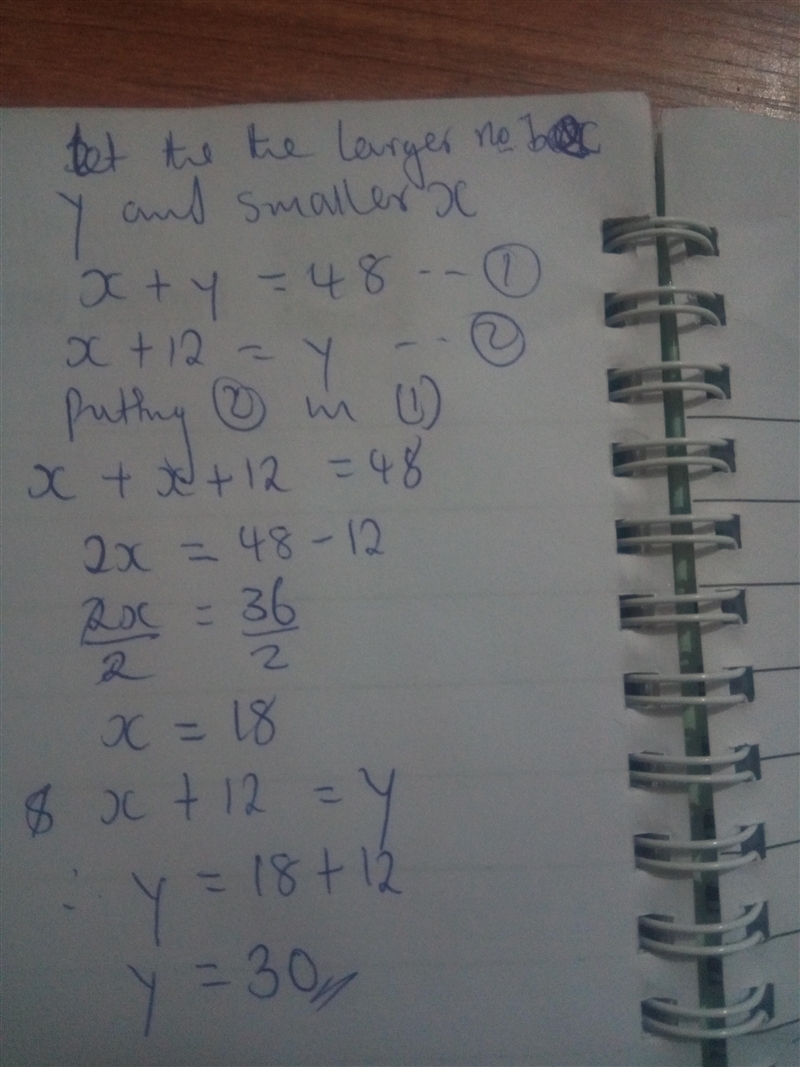 Let the the larger no be
y and smaller x
x + y = 48 -- ①
x + 12 = y -- ②
Putting ② in (1)
x + x + 12 = 48
2x = 48 - 12
2x/2 = 36/2
x = 18
x + 12 = y
∴ y = 18 + 12
y = 30